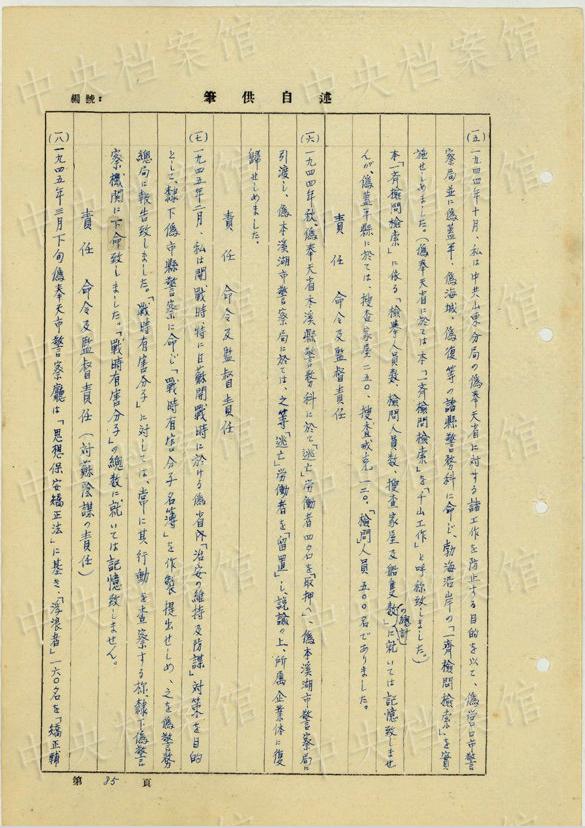 編號：
筆供自述
(一五)一九四四年十月、私は中共山東分局の偽奉天省に対する諸工作を防止する目的を以て、偽営口市警
察局並に偽蓋平、偽海城、偽復等の諸縣警務科に命じ、渤海沿岸の「一斉検問検索」を実
施せしめました。(偽奉天省に於ては本「一斉検問検索」を「千山工作」と呼称致しました。)
本「一斉検問検索」に依る「検挙」人員数、検問人員数、捜査家屋及船隻数の総計に就いては記憶致しませ
んが、偽蓋平縣に於ては、捜査家屋二五〇、捜査戎克一二〇、「検問」人員五〇〇名でありました。
責任 命令及監督責任
(一六)一九四四年秋偽奉天省本溪縣警務科に於て「逃亡」労働者四名を「取押へ」、偽本溪湖市警察局に
引渡し、偽本溪湖市警察局に於ては、之等「逃亡」労働者を「留置」し、説諭の上、所属企業体に復
帰せしめました。
責任 命令及監督責任
(一七)一九四五年二月、私は開戦時特に日蘇開戦時に於ける偽省内「治安の維持及防諜」対策を目的
として、隷下偽市縣警察に命じ「戦時有害分子名簿」を作製提出せしめ、之を偽警務
總局に報告致しました。「戦時有害分子」に対しては、常に其行動を査察する様、隷下偽警
察機関に下命致しました。「戦時有害分子」の総数に就いては記憶致しません。
責任 命令及監督責任(対蘇陰謀の責任)
(一八)一九四五年三月下旬偽奉天市警察廳は「思想保安矯正法」に基き、「浮浪者」一六〇名を「矯正輔
第85頁
中央档案馆